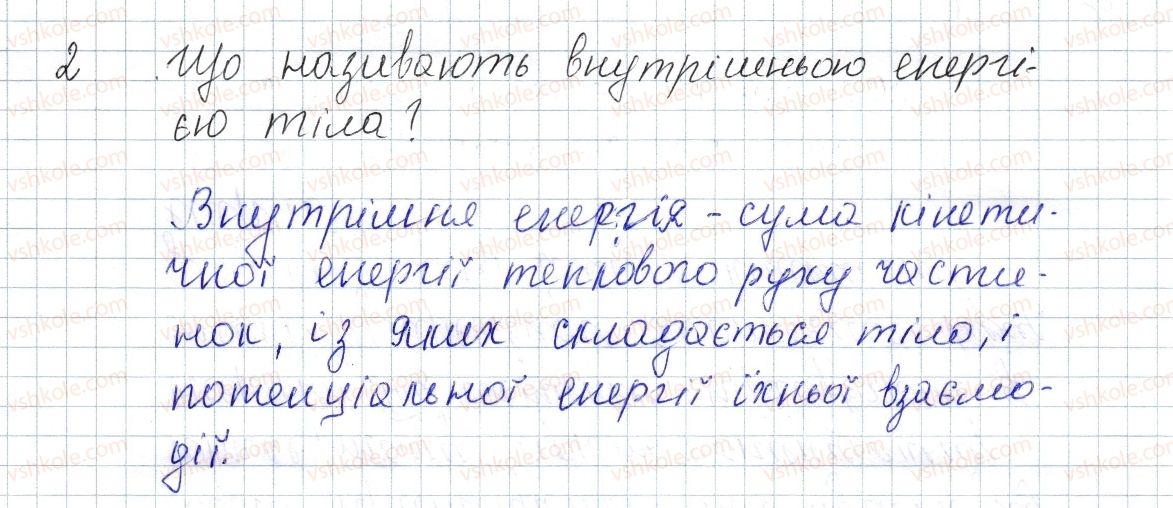 2 Що називають внутрішньою енергі-
єю тіла?
Внутрішня енергія - сума кінети-
чної енергії теплового руху части-
нок, із яких складається тіло, і
потенціальної енергії їхньої взаємо-
дії.